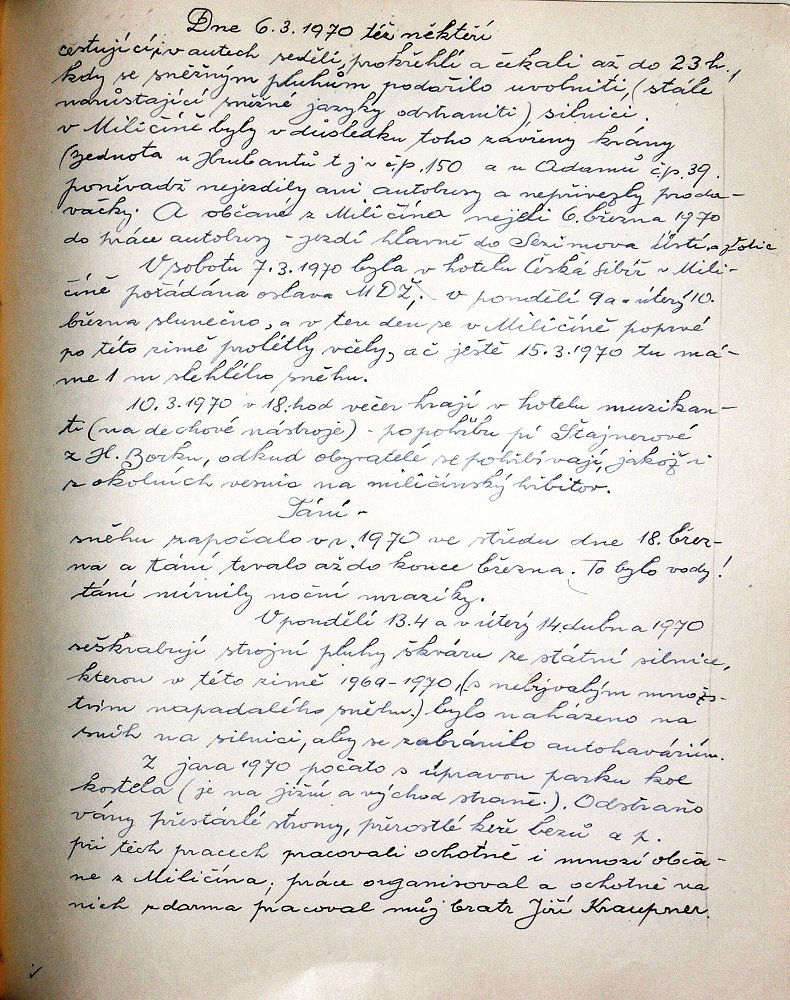 Dne 6.3.1970 též někteří
cestující, i v autech seděli, prokřehlí a čekali až do 23 h.,
kdy se sněžným pluhům podařilo uvolniti, (stále
narůstající sněžné jazyky odstraniti) silnici.
v Miličíně byly v důsledku toho zavřeny krámy
(Jednota u Hrubantů t j v č.p. 150 a u Adamů č.p. 39.
poněvadž nejezdily ani autobusy a nepřivezly proda-
vačky. A občané z Miličína nejeli 6. března 1970
do práce autobusy - jezdí hlavně do Sezimova Ústí
V sobotu 7.3.1970 byla v hotelu Česká Sibiř v Mili-
číně pořádána oslava MDŽ; v pondělí 9 a v úterý 10.
března slunečno, a v ten den se v Miličíně poprvé
po této zimě prolétly včely, ač ještě 15.3.1970 tu má-
me 1 m slehlého sněhu.
10.3.1970 v 18. hod večer hrají v hotelu muzikan-
ti (na dechové nástroje) - po pohřbu pí Štajnerové
z H. Borku, odkud obyvatelé se pohřbívají, jakož i
z okolních vesnic na miličínský hřbitov.
Tání -
sněhu započalo v r. 1970 ve středu dne 18. břez-
na a tání trvalo až do konce března. To bylo vody!
tání mírnily noční mrazíky.
V pondělí 13.4 a v úterý 14. dubna 1970
seškrabují strojní pluhy škváru ze státní silnice,
kterou v této zimě 1969-1970, (s nebývalým množs-
tvím napadalého sněhu.) bylo naházeno na
sníh na silnici, aby se zabránilo autohaváriím.
Z jara 1970 počato s úpravou parku kol
kostela (je na jižní a východ straně.). Odstraňo
vány přestárlé stromy, přerostlé keře bezů a p.
při těch pracech pracovali ochotně i mnozí obča-
né z Miličína; práce organisoval a ochotně na
nich zdarma pracoval můj bratr Jiří Kraupner.